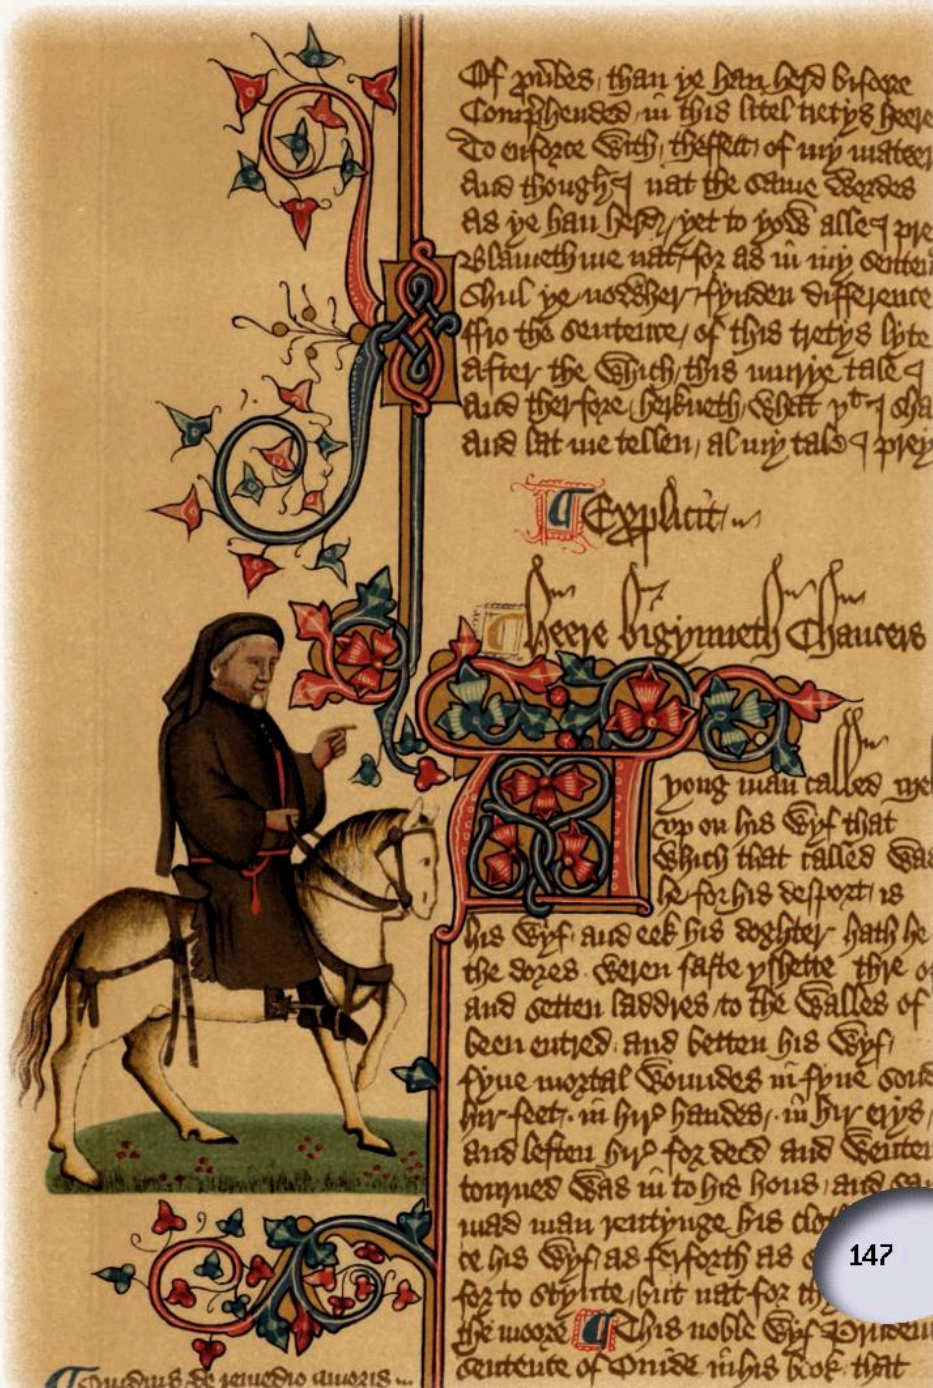 Of prũbes / than ye han herd bifore
Comp̱hended / in this litel tretys heere
To enforce with / theffect of my mateer
And though I nat the same wordes
As ye han herd / yet to yow alle I pre
Blameth me nat / for as in my senten
Shul ye nowher fynden difference
ffro the sentence / of this tretys lyte
After the which / this murye tale I
And therfore herkneth / what yt I sha
And lat me tellen / al my tale I prey
Explicit
Heere bigynneth Chaucers
A
yong man called Mel
vp on his wyf that
which that called was
he for his desport / is
his wyf / and eek his doghter hath he
the dores weren faste yshette thre o
and setten laddres / to the walles of
been entred and betten his wyf /
fyue mortal woundes in fyue
hir feet / in hir handes / in hir erys /
and leften hir for deed and wenten
tourned was in to his hous / and
mad man rentynge his
ce his wyf / as ferforth as
for to stynte / but nat for
the moore This noble wyf Pruden
sentence of Ouide in his book that
Ouidius de remedio amoris
147